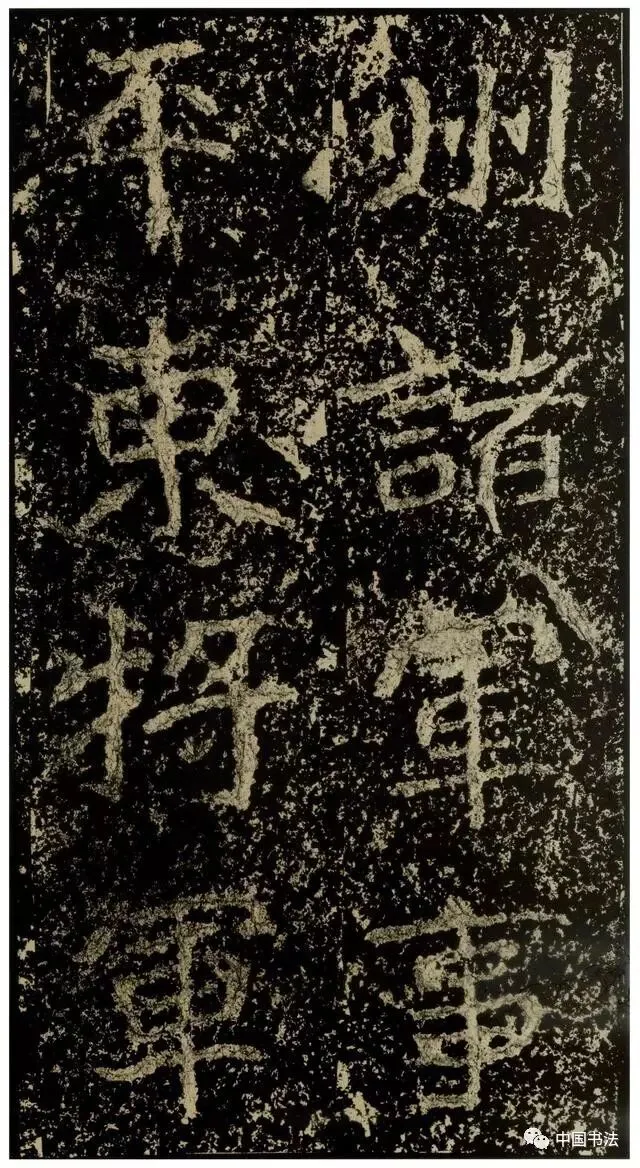 州諸軍事
平東將軍
中国书法